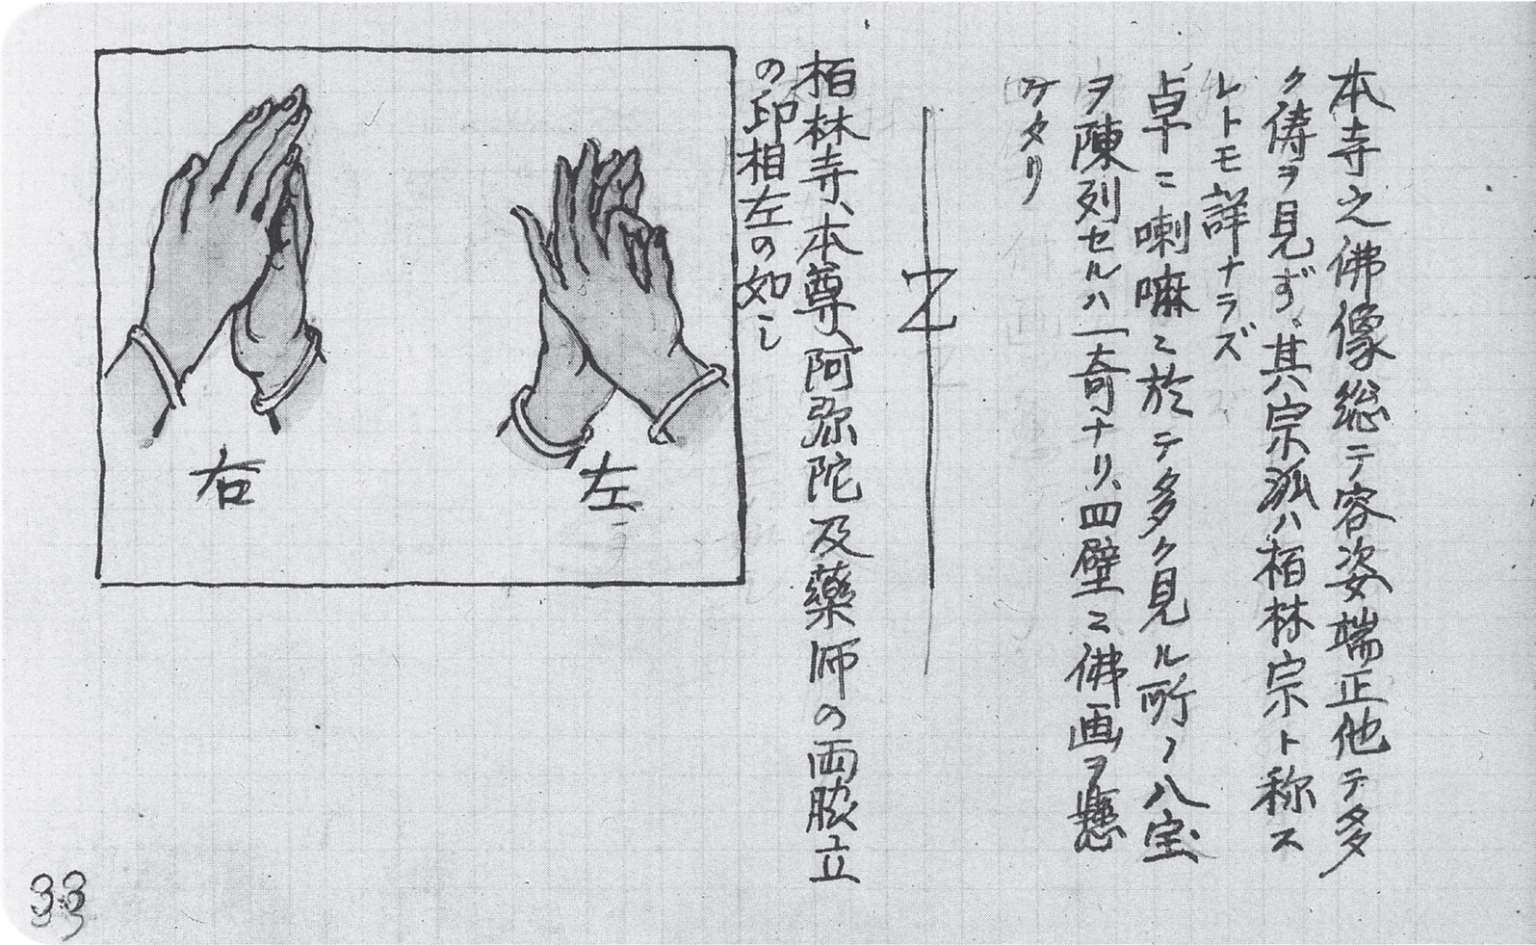 本寺之佛像総テ容姿端正他テ多
ク儔ヲ見ず、其宗派ハ栢林宗ト称ス
レトモ詳ナラズ
卓ニ喇嘛ニ於テ多ク見ル所ノ八宝
ヲ陳列セルハ一奇ナリ、四壁ニ佛画ヲ懸
ケタリ
栢林寺、本尊、阿弥陀及藥師の両脇立
の印相左の如し
左
右
33